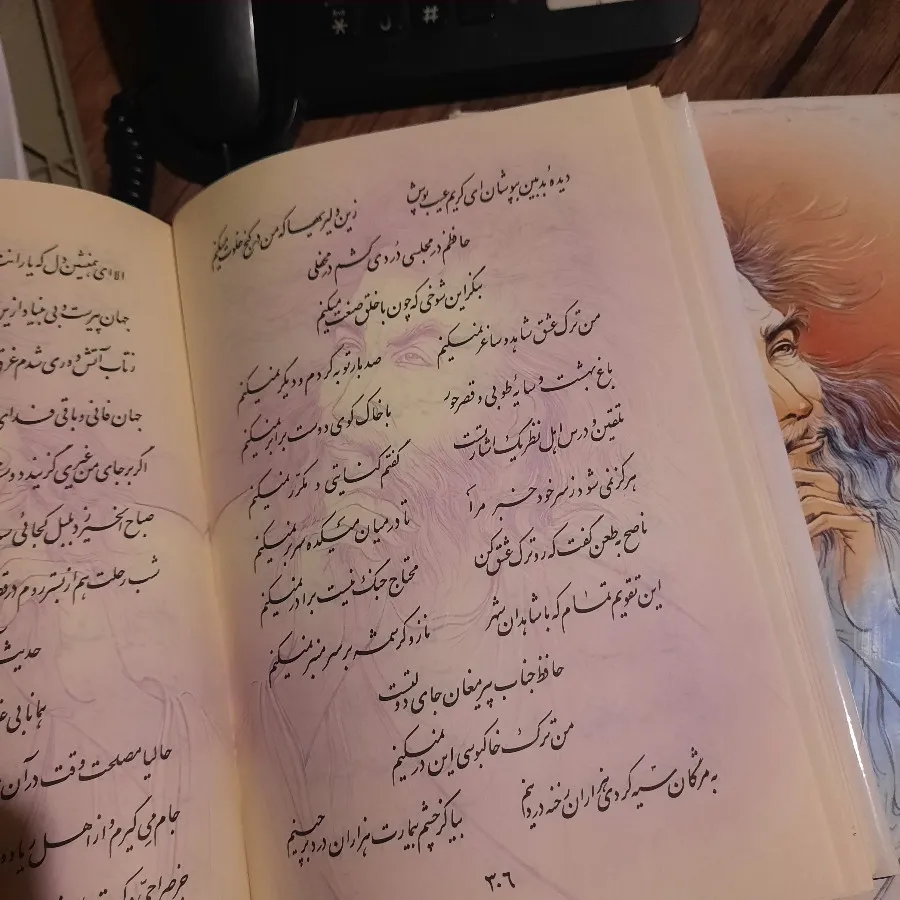 دیدهٔ بدبین بپوشان ای کریم عیب پوش
زین دلیریها که من در کنج خلوت میکنم
حافظم در مجلسی دردی کشم در محفلی
بنگر این شوخی که چون با خلق صنعت میکنم
من ترک عشق شاهد و ساغر نمیکنم
صد بار توبه کردم و دیگر نمیکنم
باغ بهشت و سایهٔ طوبی و قصر حور
با خاک کوی دوست برابر نمیکنم
تلقین و درس اهل نظر یک اشارتست
گفتم کنایتی و مکرر نمیکنم
هرگز نمی شود ز سر خود خبر مرا
تا در میان میکده سر بر نمیکنم
ناصح به طعن گفت که رو ترک عشق کن
محتاج جنگ نیست برادر نمیکنم
این تقویم تمام که با شاهدان شهر
ناز و کرشمه بر سر منبر نمیکنم
حافظ جناب پیر مغان جای دولتست
من ترک خاکبوسی این در نمیکنم
به مژگان سیه کردی هزاران رخنه در دینم
بیا کز چشم بیمارت هزاران درد برچینم
۳۰۶
الا ای همنشین دل که یارانت
جهان پیرست و بی بنیاد ازین
ز تاب آتش دوری شدم غرق
جهان فانی و باقی فدای
اگر بر جای من غیری گزیند دوست
صباح الخیر زد بلبل کجائی
شب رحلت هم از بستر روم در
حدیث
همانا بی
حالیا مصلحت وقت در آن
جام می گیرم و از اهل ریا دور
جز صراحی و